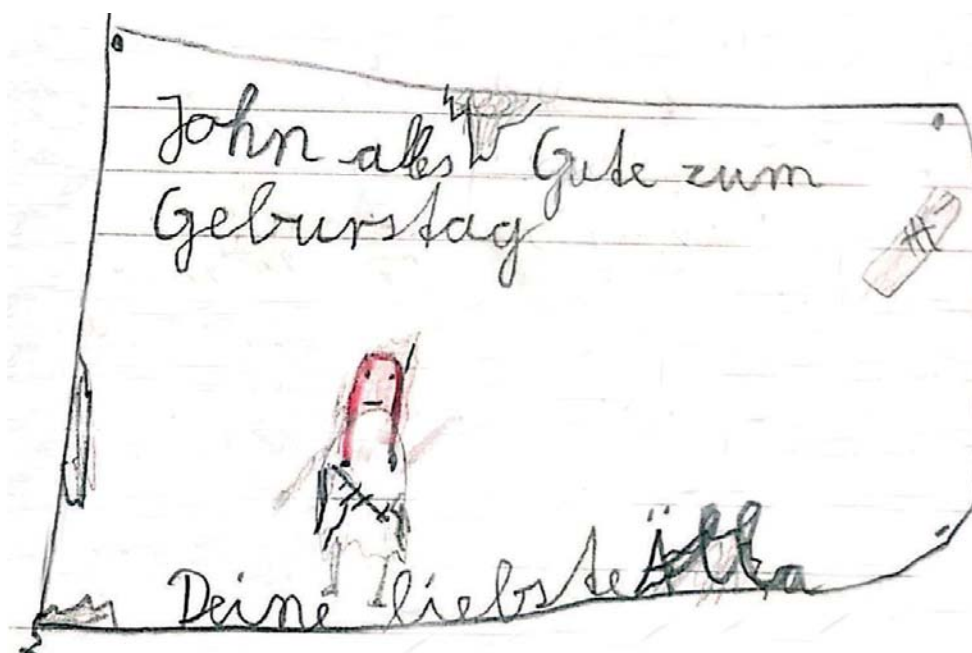 John alles Gute zum
Geburstag
Deine liebste